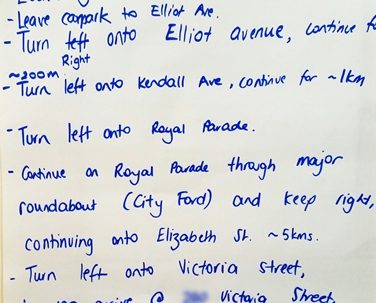 - Leave carpark to Elliot Ave.
- Turn left onto Elliot avenue, continue for
Right
~200m
- Turn left onto Kendall Ave, continue for ~1km
- Turn left onto Royal Parade.
- Continue on Royal Parade through major
roundabout (City Ford) and keep right,
continuing onto Elizabeth St. ~5kms.
- Turn left onto Victoria street,
arrive @ Victoria Street